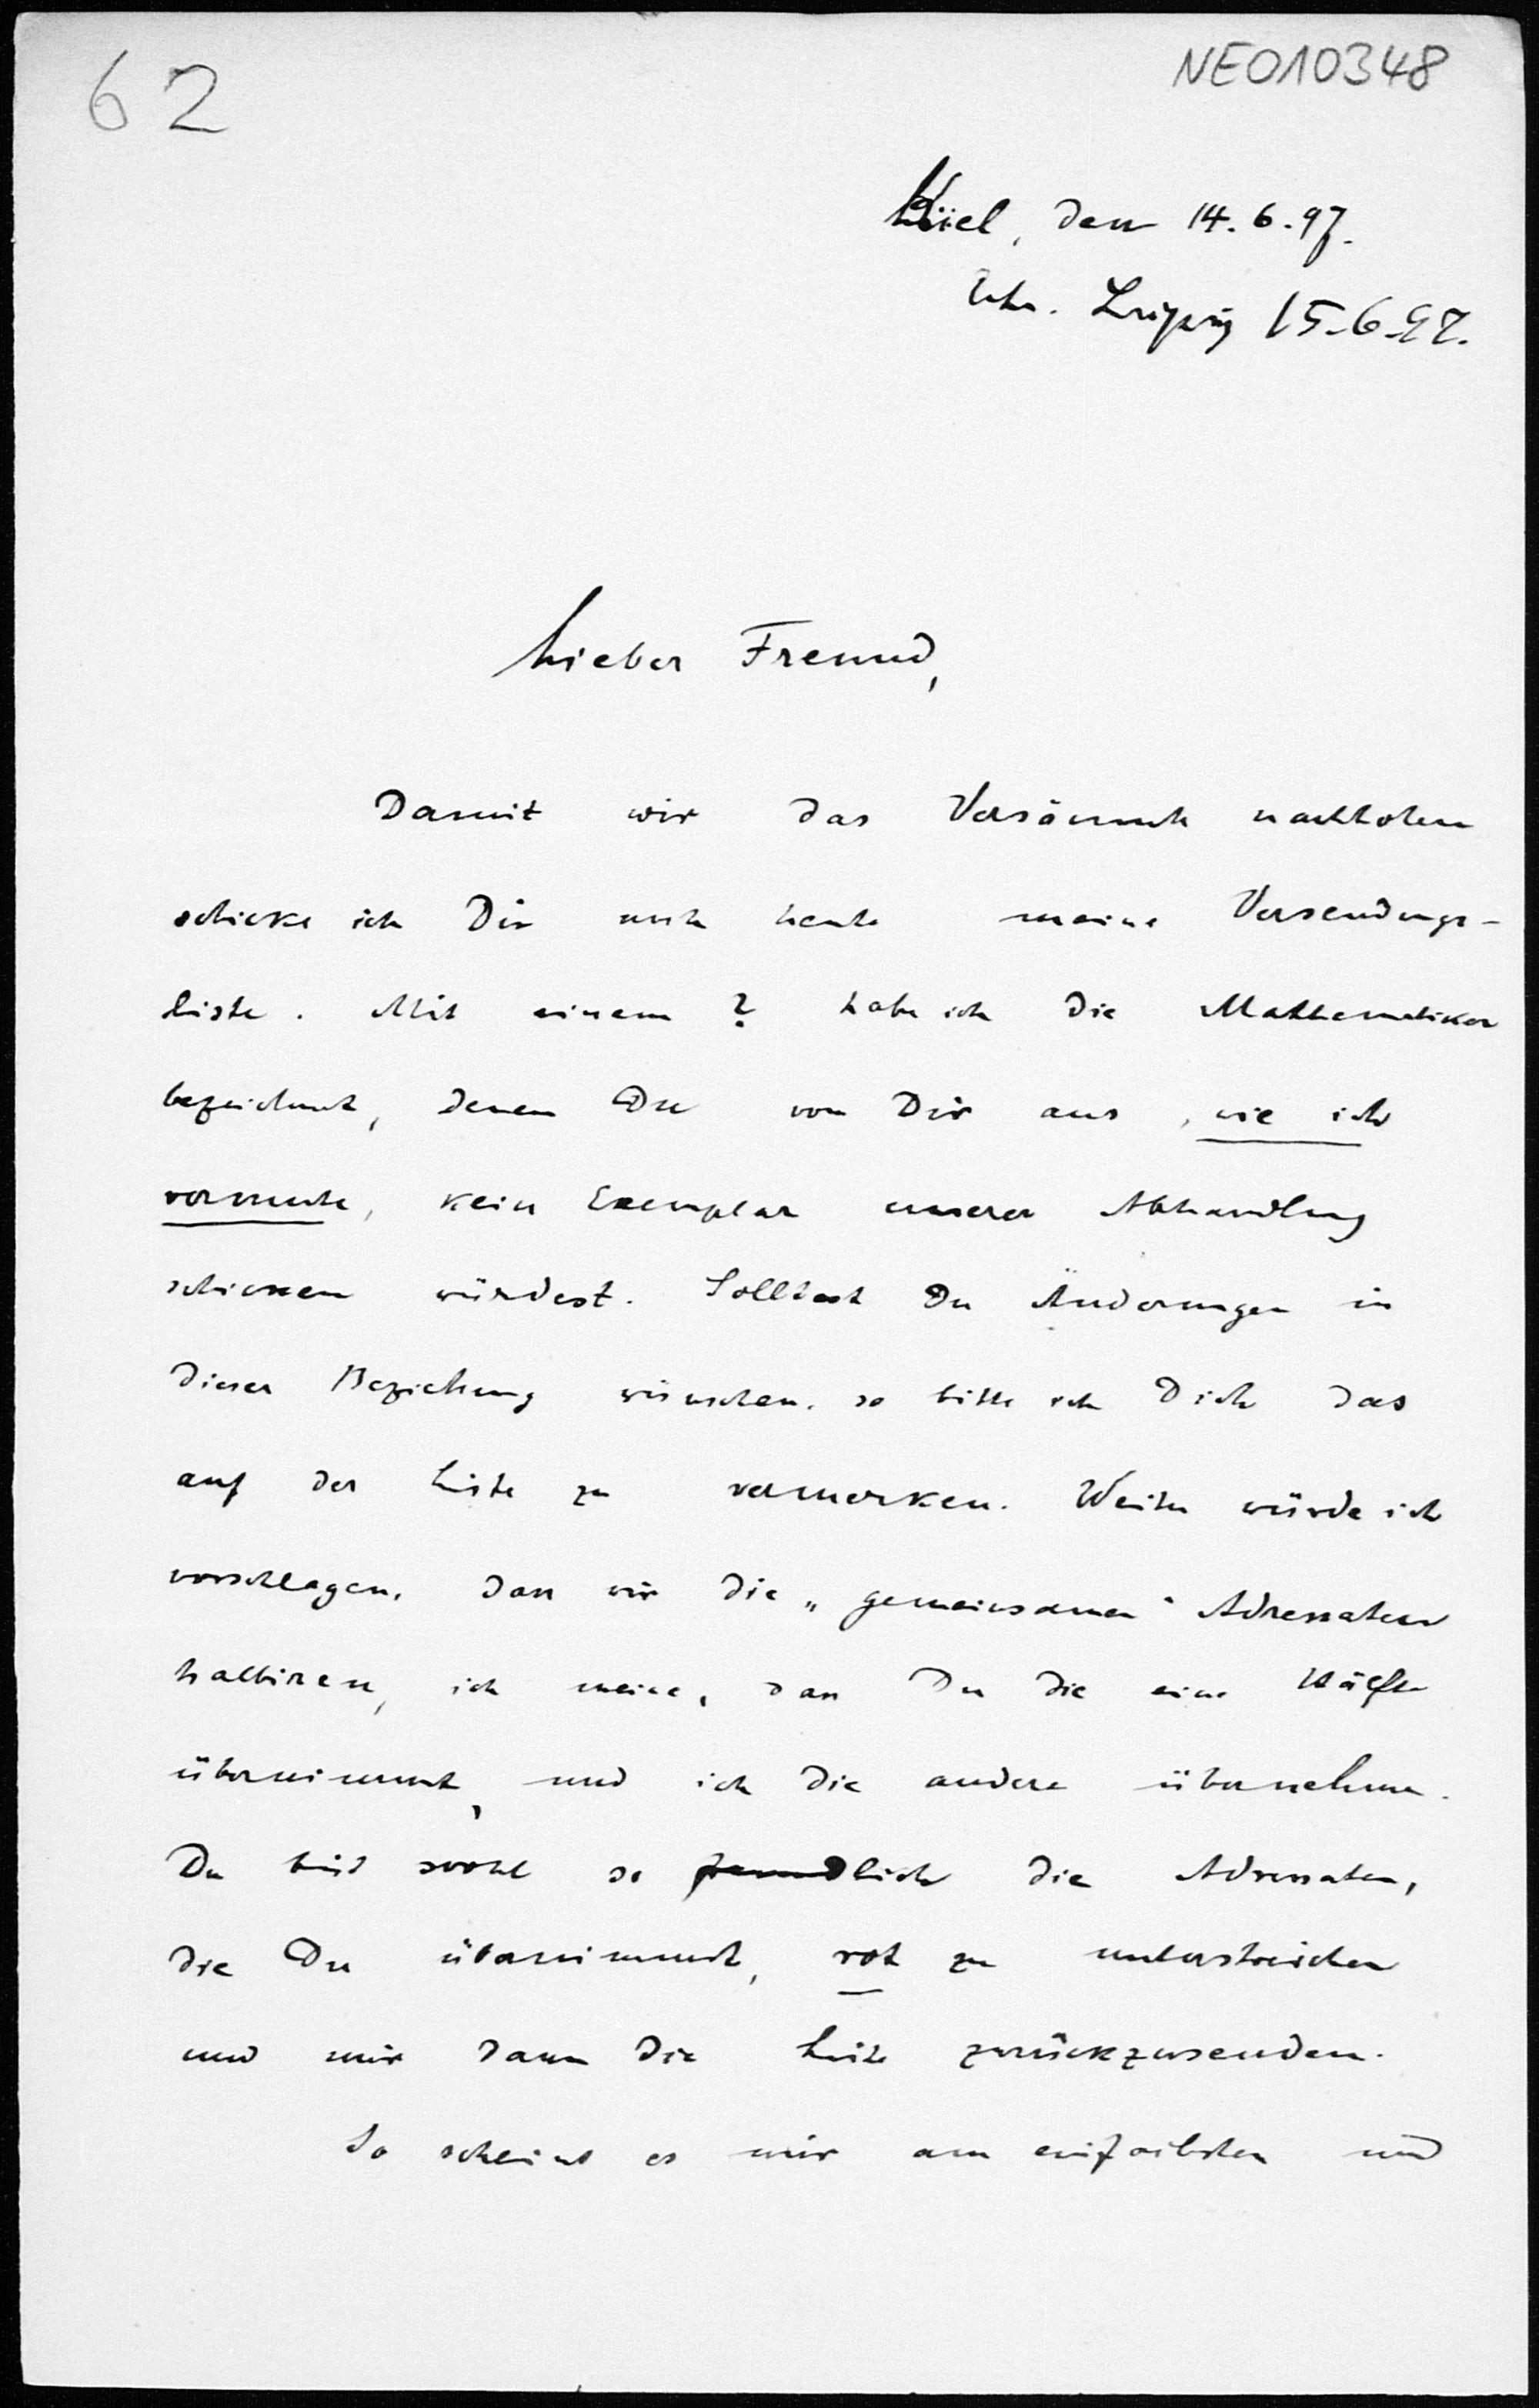 62
NE010348
Kiel, den 14.6.97.
Erh. Leipzig 15.6.97.
Lieber Freund,
Damit wir das Versäumte nachholen
schicke ich Dir noch heute meine Versendungs-
liste. Mit einem ? habe ich die Mathematiker
bezeichnet, denen Du von Dir aus, wie ich
vermute, kein Exemplar unserer Abhandlung
schicken würdest. Solltest Du Änderungen in
dieser Beziehung wünschen, so bitte ich Dich das
auf der Liste zu vermerken. Weiter würde ich
vorschlagen, dass wir die „gemeinsamen“ Adressaten
halbiren, ich meine, dass Du die eine Hälfte
übernimmst, und ich die andere übernehme.
Du bist wohl so freundlich die Adressaten,
die Du übernimmst, rot zu unterstreichen
und mir dann die Liste zurückzusenden.
So scheint es mir am einfachsten und